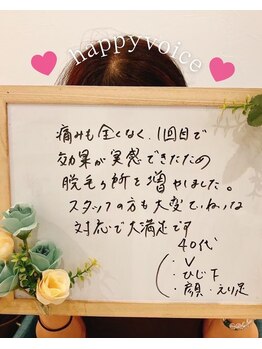 happy voice
痛みも全くなく、1回目で
効果が実感できたたの
脱毛ヶ所を増やしました。
スタッフの方も大変ていねいな
対応で大満足です
40代
・V
・ひじ下
・顔・えり足